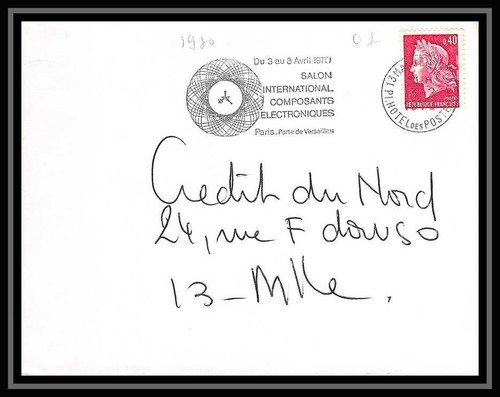 1980
01
Du 3 au 8 Avril 1970
SALON
INTERNATIONAL
COMPOSANTS
ELECTRONIQUES
Paris, Porte de Versailles
0,40
REPUBLIQUE FRANÇAISE
13 MA
P1. HOTEL DES POSTES
Credit du Nord
24, rue F
13 - Mlle.